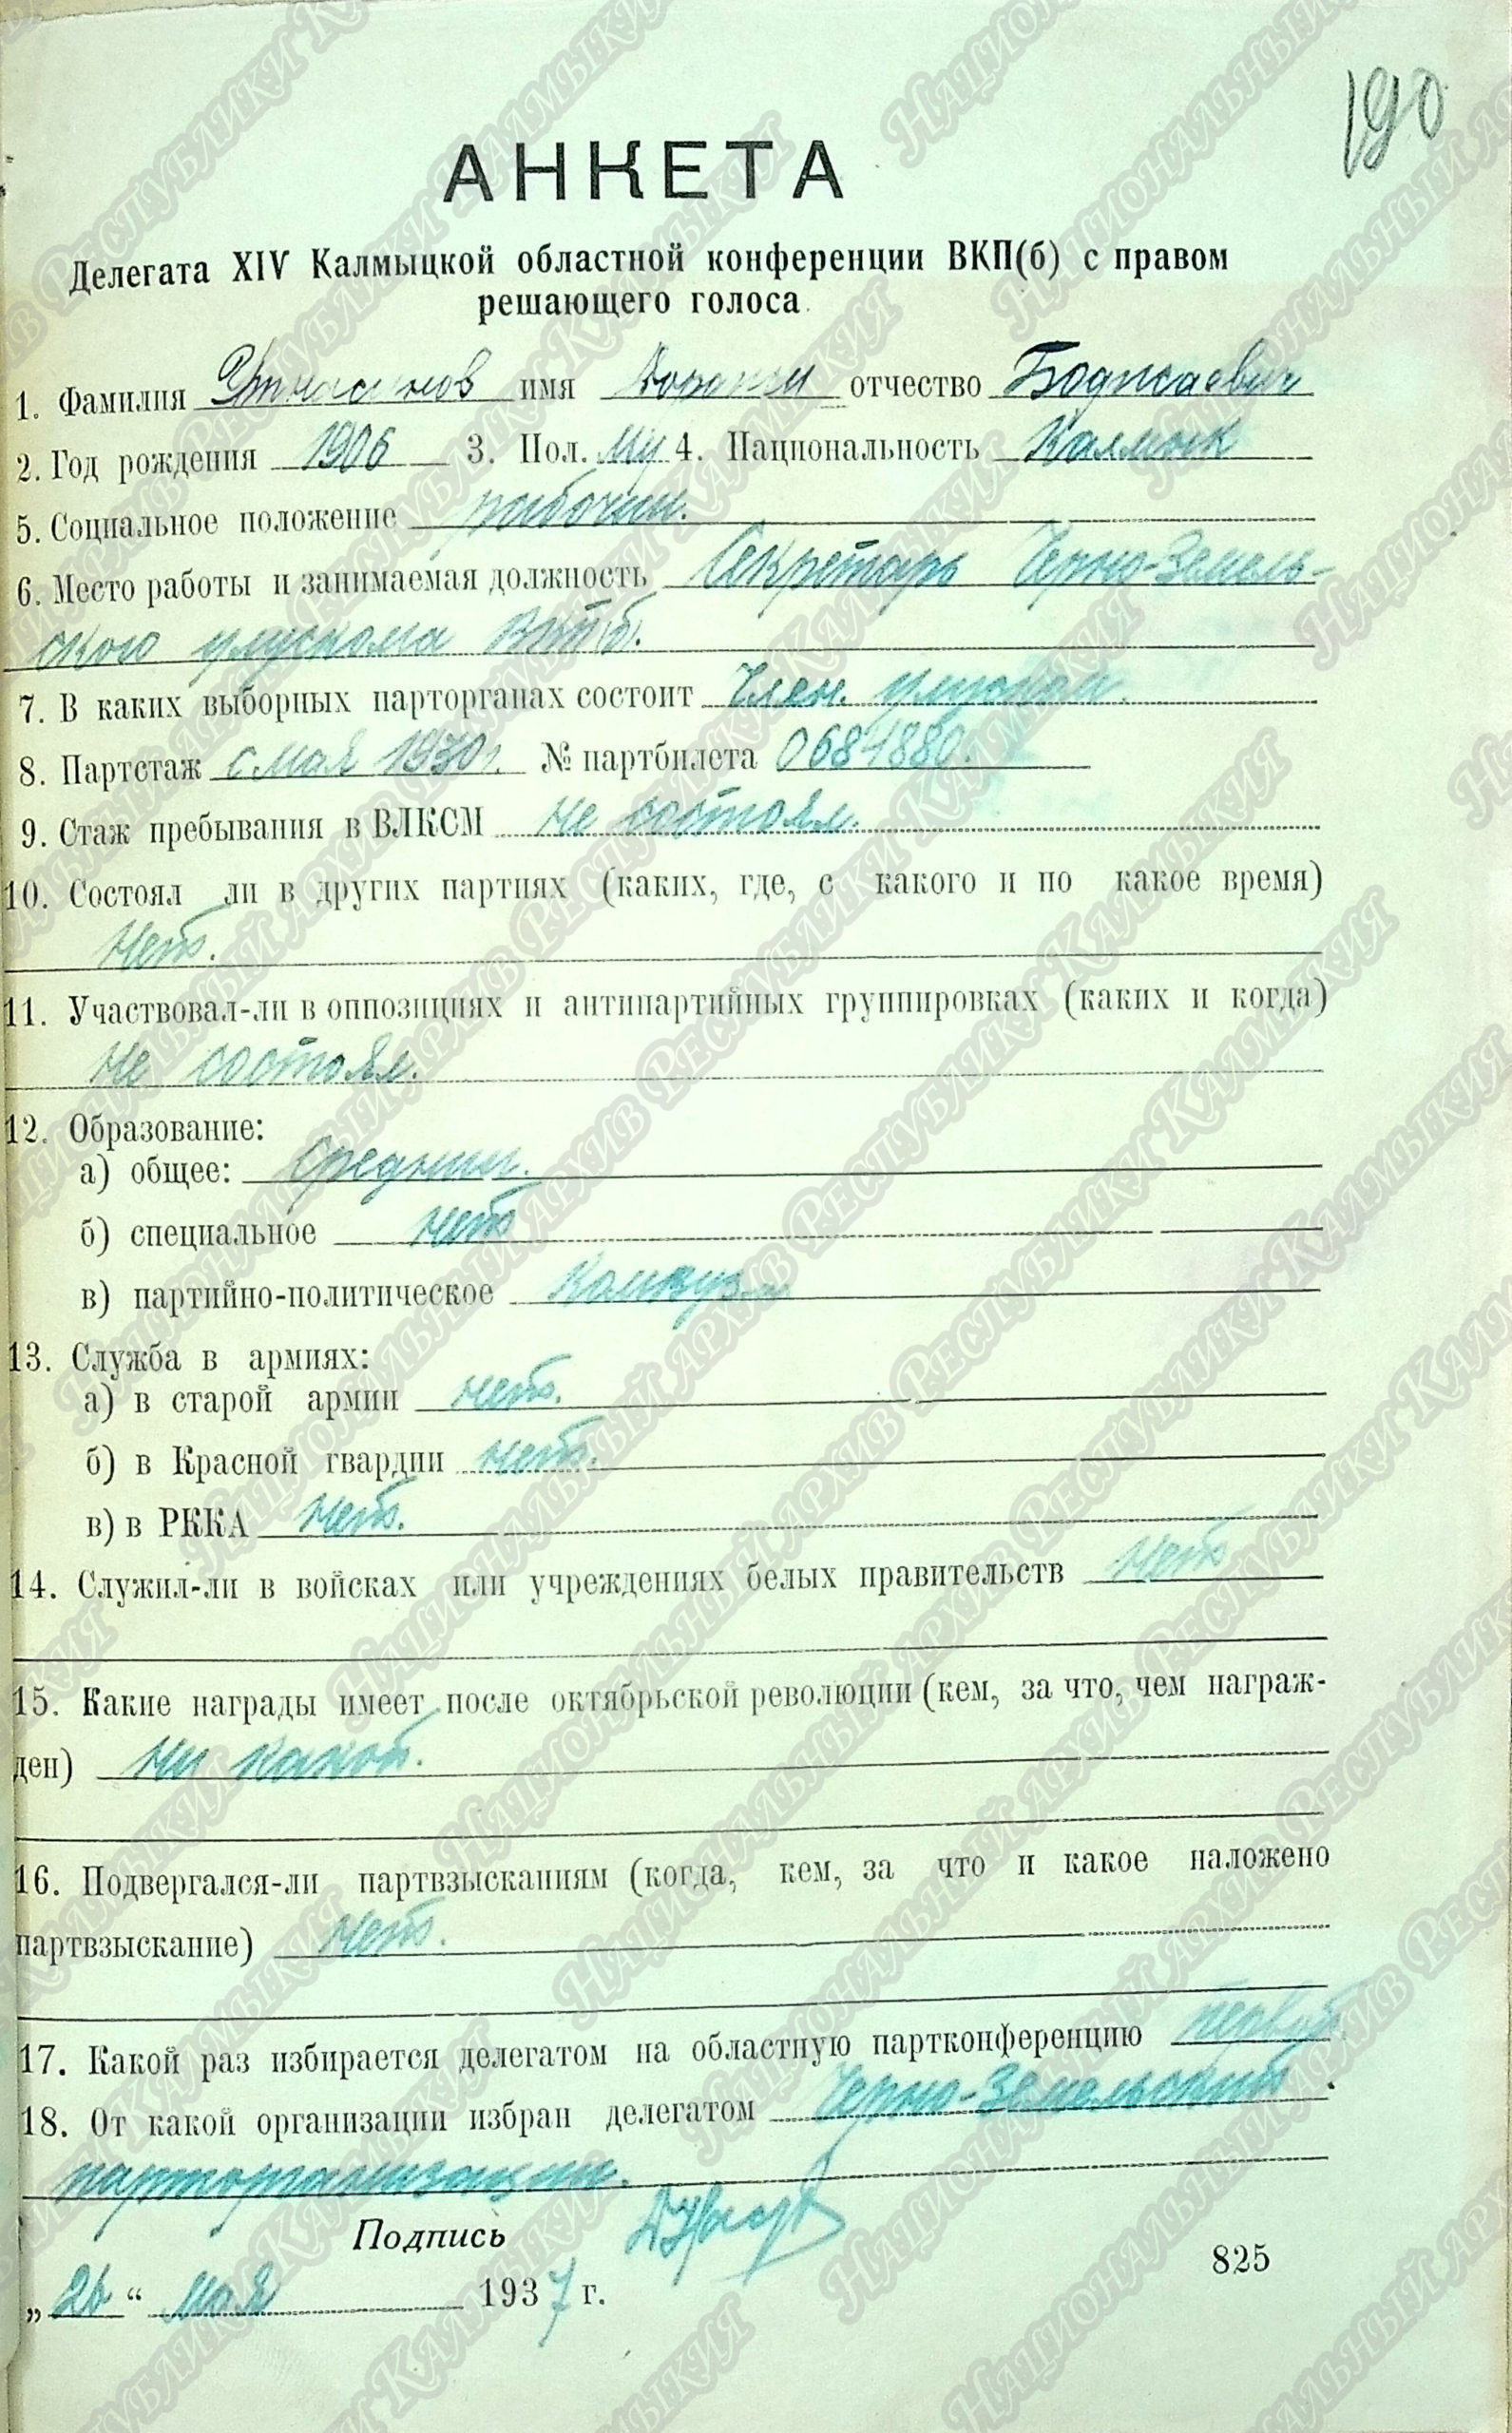 190
АНКЕТА
Делегата XIV Калмыцкой областной конференции ВКП(б) с правом
решающего голоса.
1. Фамилия имя отчество Боджаевич
2. Год рождения 1906 3. Пол. Му 4. Национальность Калмык
5. Социальное положение рабочий.
6. Место работы и занимаемая должность Секретарь Черно-Земель-
ского улускома ВКП(б).
7. В каких выборных парторганах состоит Член. улуском.
8. Партстаж с мая 1930 г. № партбилета 0681880.
9. Стаж пребывания в ВЛКСМ не состоял.
10. Состоял ли в других партиях (каких, где, с какого и по какое время)
Нет.
11. Участвовал-ли в оппозициях и антипартийных группировках (каких и когда)
Не состоял.
12. Образование:
а) общее: Средний.
б) специальное нет
в) партийно-политическое Комвуз
13. Служба в армиях:
а) в старой армии нет.
б) в Красной гвардии нет.
в) в РККА Нет.
14. Служил-ли в войсках или учреждениях белых правительств Нет
15. Какие награды имеет после октябрьской революции (кем, за что, чем награж-
ден) Ни какой.
16. Подвергался-ли партвзысканиям (когда, кем, за что и какое наложено
партвзыскание) Нет.
17. Какой раз избирается делегатом на областную партконференцию первый
18. От какой организации избран делегатом Черно-Земельский
парторганизации.
Подпись
„26“ мая 1937 г.
825
Национальный архив Республики Калмыкия